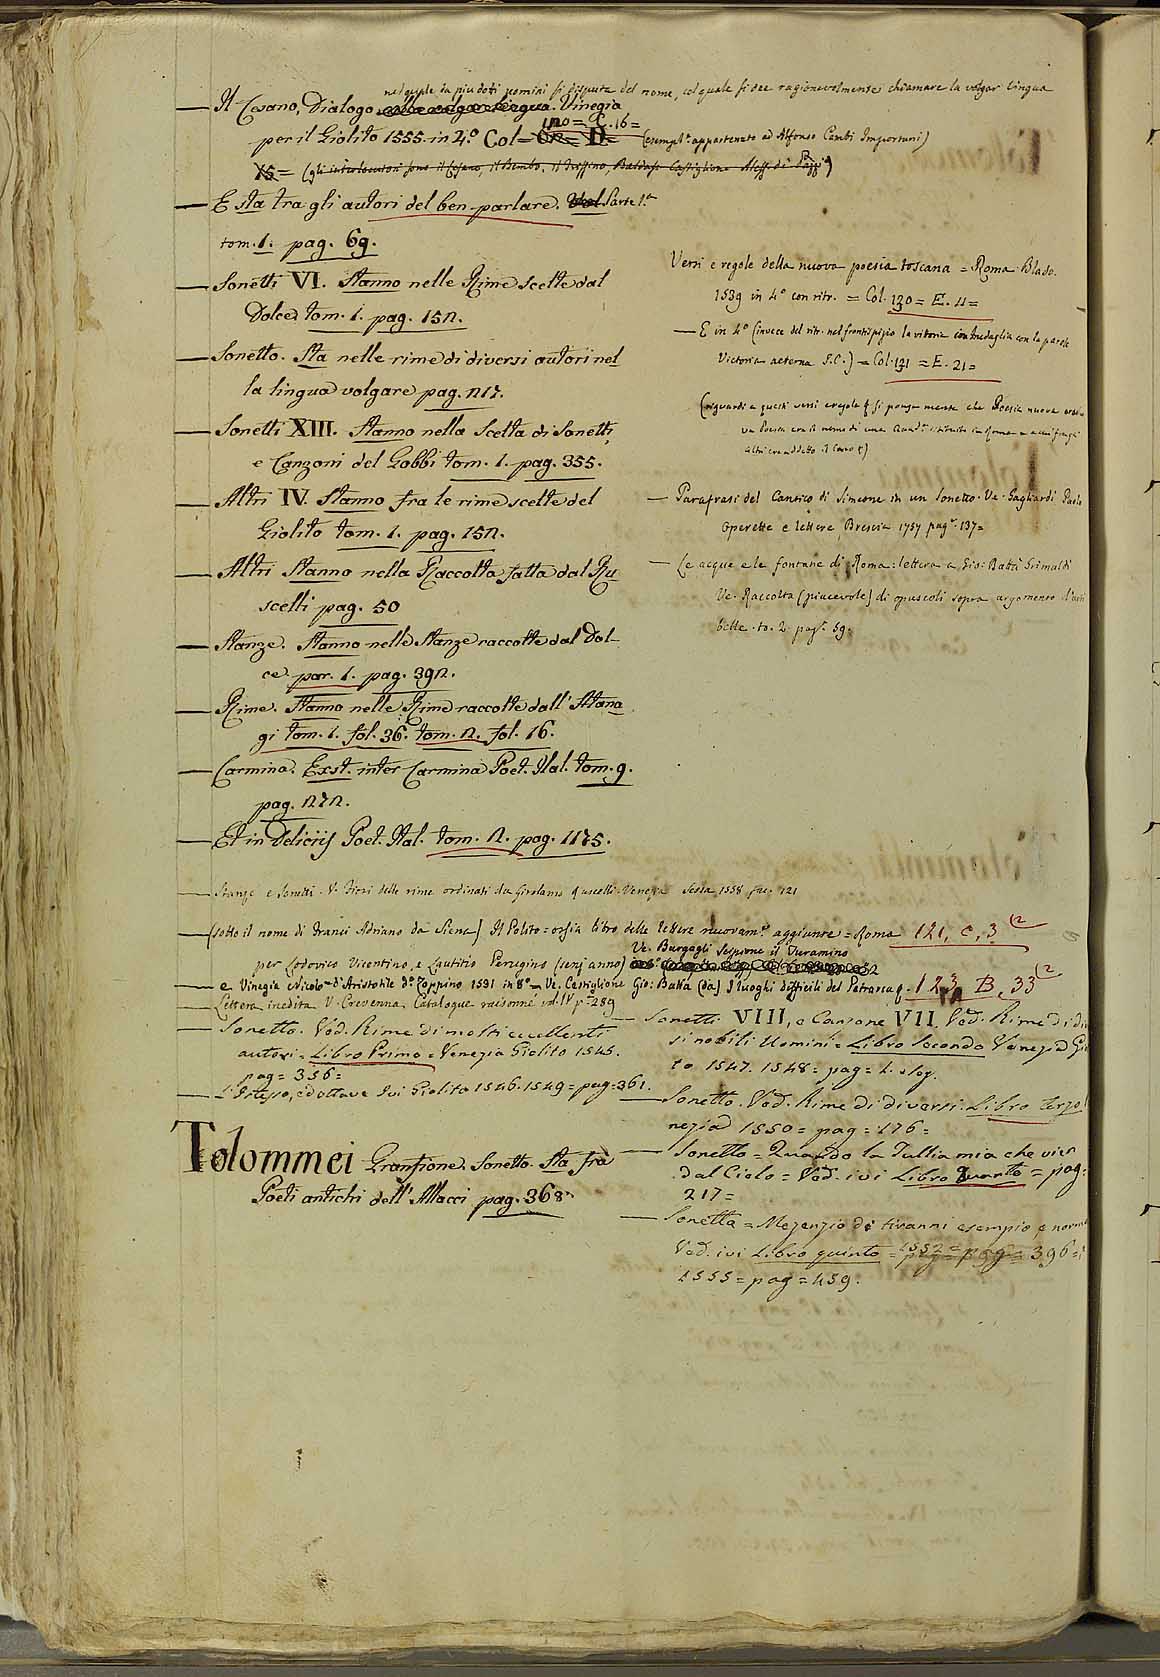 nel quale da piu dotti uomini si disputa del nome, col quale si dee ragionevolmente chiamare la volgar lingua
— Il Cesano, Dialogo della volgar lingua. Vinegia
120 = C. 16 =
per il Giolito 1555. in 4.º Col = D = (esempl.e appartenuto ad Alfonso Cambi Importuni)
15 = (gli interlocutori sono il Cesano, il Bembo, il Trissino, Baldass. Castiglione Aless. di Pazzi)
— E sta tra gli autori del ben parlare. Vol Parte 1.a
tom. 1. pag. 69.
— Sonetti VI. Stanno nelle Rime scelte dal
Dolce tom. 1. pag. 152.
— Sonetto. Sta nelle rime di diversi autori nel
la lingua volgare pag. 217.
— Sonetti XIII. Stanno nella Scelta di Sonetti,
e Canzoni del Gobbi tom. 1. pag. 355.
— Altri IV. Stanno fra le rime scelte del
Giolito tom. 1. pag. 152.
— Altri Stanno nella Raccolta fatta dal Ru
scelli pag. 50
— Stanze. Stanno nelle Stanze raccolte dal Dol-
ce par. 1. pag. 392.
— Rime. Stanno nelle Rime raccolte dall'Atana
gi tom. 1. fol. 36. tom. 2. fol. 16.
— Carmina. Exst. inter Carmina Poet. Ital. tom. 9.
pag. 272.
— Et in Deliciis Poet. Ital. tom. 2. pag. 1175.
Versi e regole della nuova poesia toscana = Roma Blado.
1539 in 4º con ritr. = Col. 130 = E. 4 =
— E in 4º (invece del ritr. nel frontispizio la vitoria con medaglia con la parole
Victoria aeterna S.C.) = Col. 121 = E. 21 =
(riguardi a questi versi e regole si ponga mente che Poesia nuova
— Parafrasi del Cantico di Simeone in un Sonetto. Ve. Gagliardi Paolo
Operette e lettere, Brescia 1757 pag.e 137 =
— Le acque e le fontane di Roma: lettera a Gio: Batta Grimaldi
Ve. Raccolta (piacevole) di opuscoli sopra argomento d'arti
belle. to. 2. pag.e 59.
— Stanze e Sonetti. V. Fiori delle rime ordinati da Girolamo Ruscelli. Venezia Sessa 1558 fac. 121
— (sotto il nome di Franci Adriano da Siena) Il Polito = ossia libro delle lettere nuovam.e aggiunte = Roma 121, C, 3 (2
per Lodovico Vicentino, e Lautitio Perugino (senz'anno) Ve. Burgagli Scipione il Turamino
— e Vinegia Nicolo d'Aristotile d.o Zoppino 1531 in 8º — Ve. Castiglione Gio: Batta (da) I luoghi difficili del Petrarca 123 B, 33 (2
— Lettera inedita V. Crevenna Catalogue raisonné vol. IV p. 289
— Sonetto. Ved. Rime di molti eccellenti
autori = Libro Primo = Venezia Giolito 1545.
pag = 356 =
— L'Istesso, ed ottave Ivi Giolito 1546. 1549 = pag = 361.
— Sonetti VIII, e Canzone VII. Ved. Rime di di
si nobili Uomini = Libro Secondo Venezia Gio
to 1547. 1548 = pag =
— Sonetto. Ved. Rime di diversi. Libro terzo
nezia 1550 = pag = 176 =
— Sonetto = Quando la Tullia mia che vien
dal Cielo = Ved. ivi Libro Quarto = pag =
217 =
— Sonetto = Mezenzio de tiranni esempio, e norma
Ved. ivi Libro quinto = 1552 = pag = 396 =
1555 = pag = 459.
Tolommei Granfione. Sonetto. Sta fra
Poeti antichi dell'Allacci pag. 368.